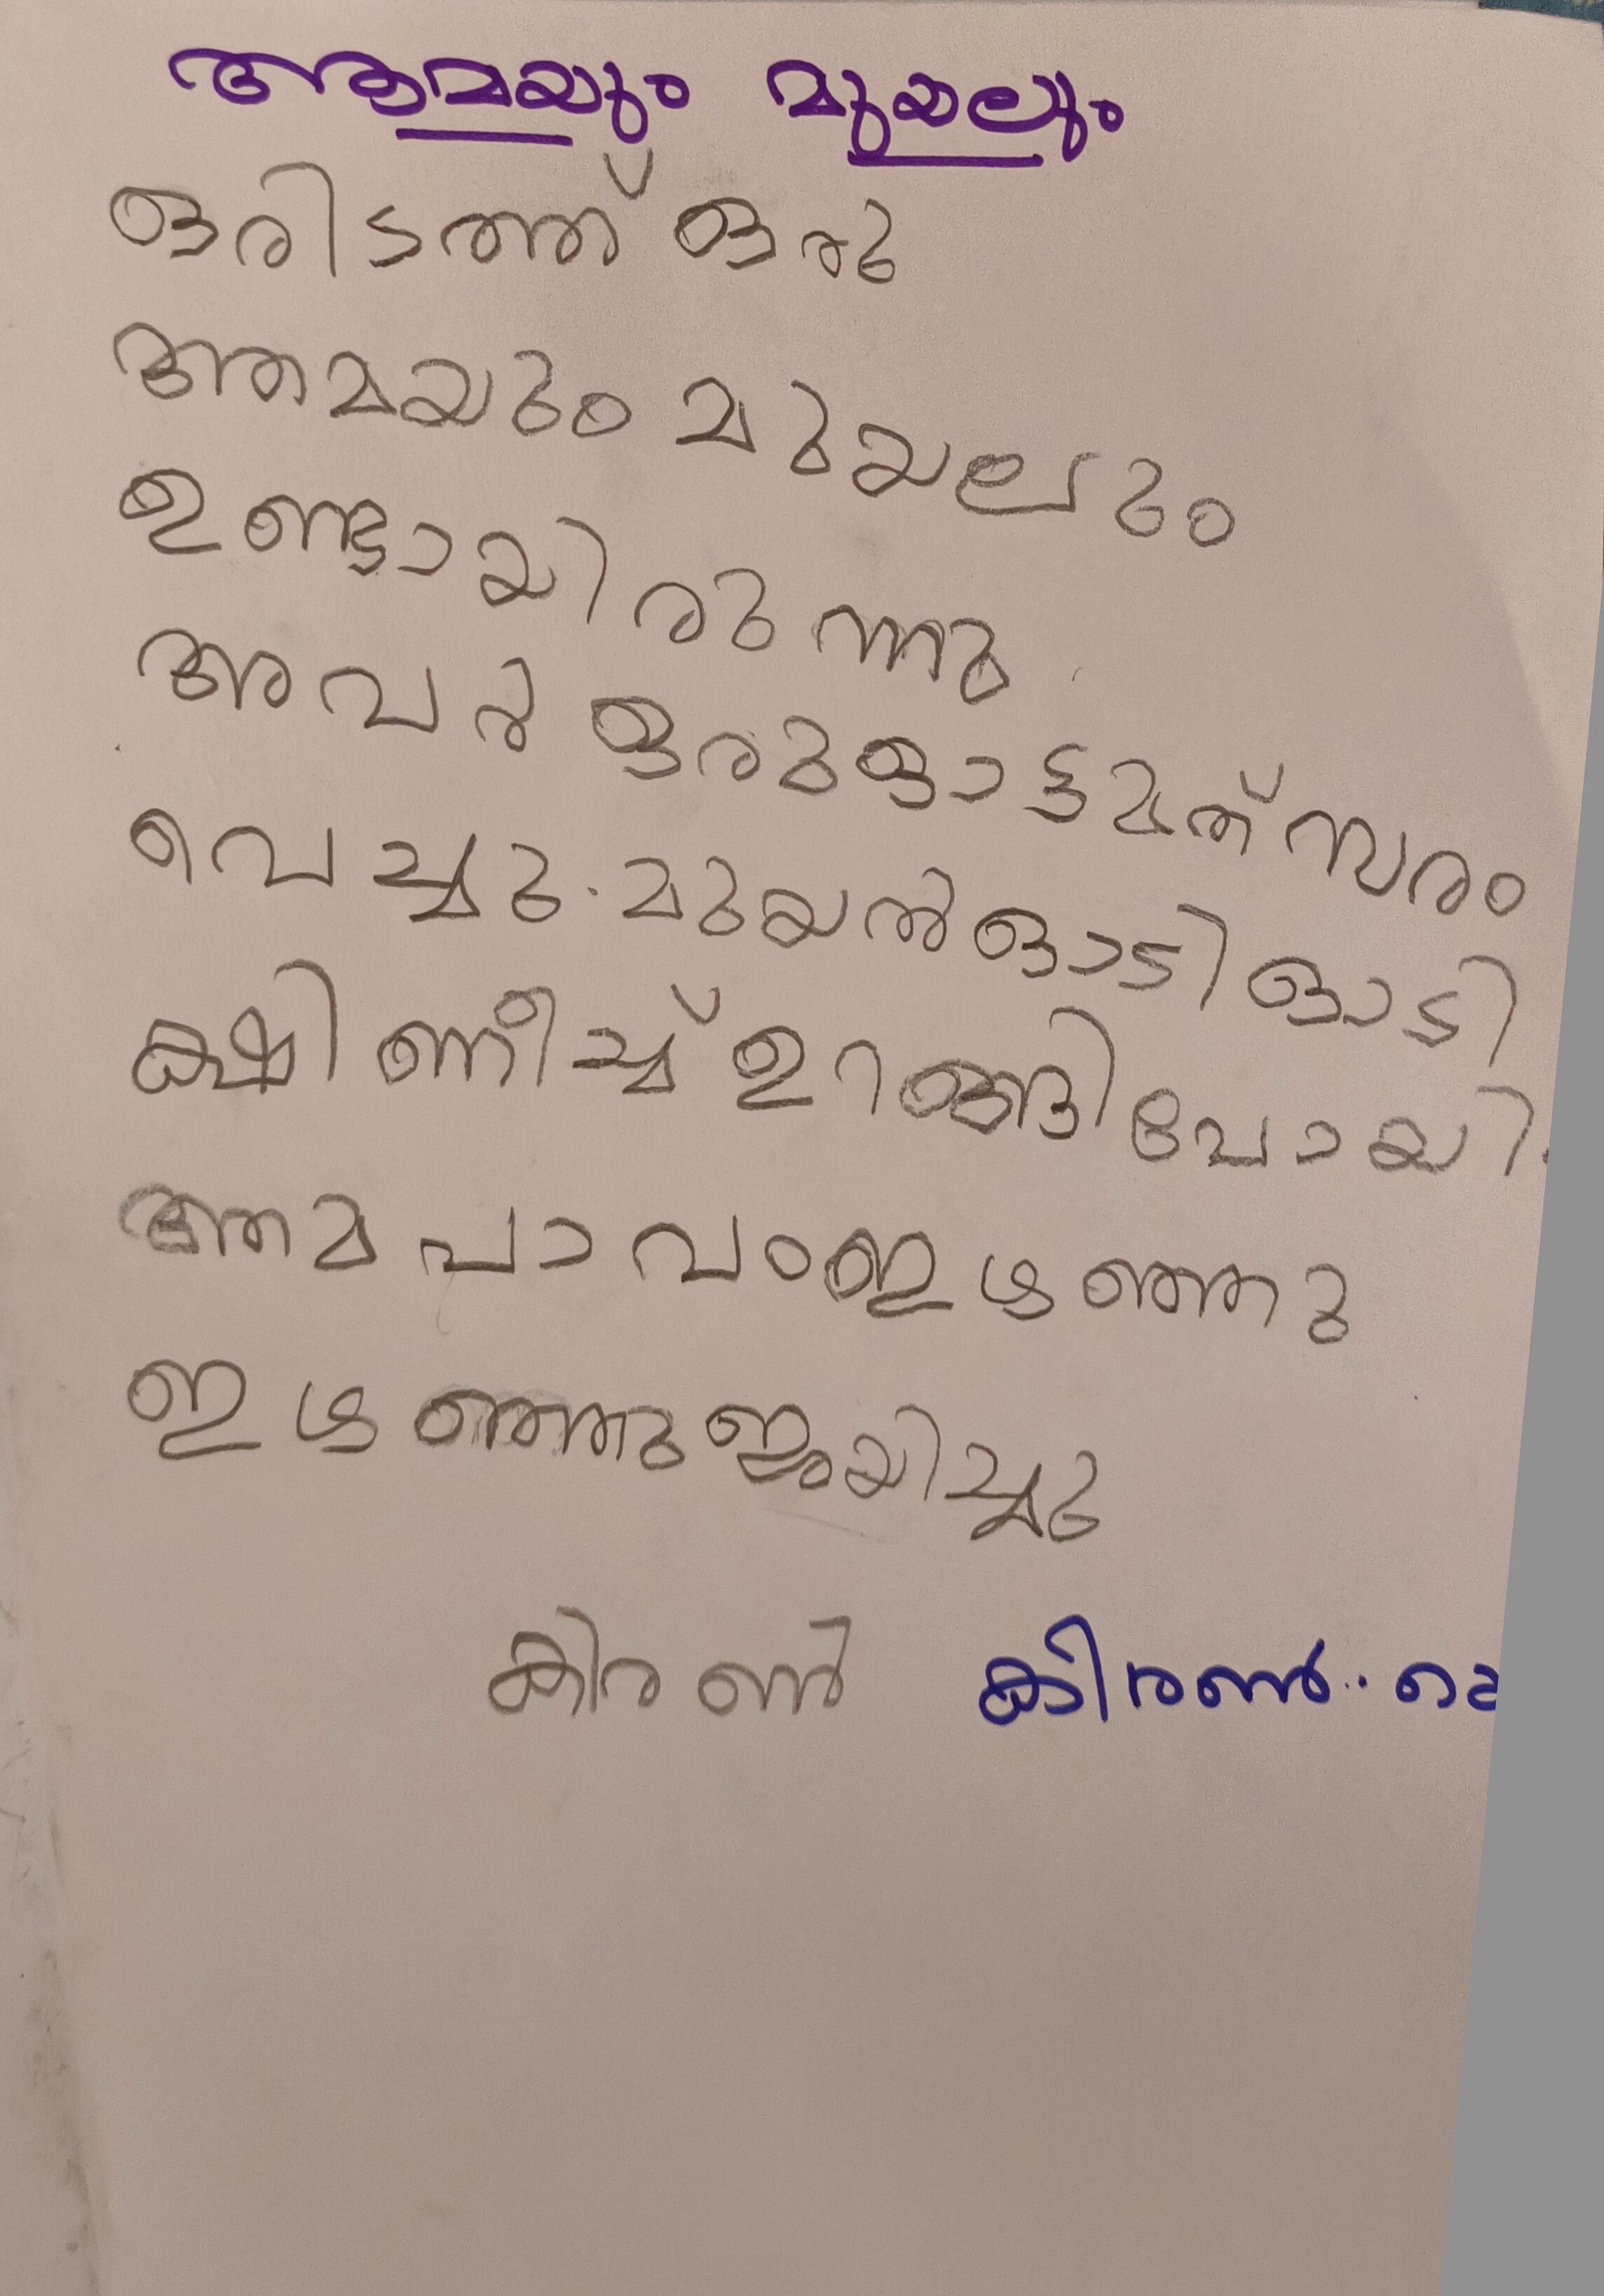 ആമയും മുയലും
ഒരിടത്ത് ഒരു
ആമയും മുയലും
ഉണ്ടായിരുന്നു
അവർ ഒരു ഓട്ടമത്സരം
വെച്ചു. മുയൽ ഓടി ഓടി
ക്ഷീണിച്ച് ഉറങ്ങി പോയി.
ആമ പാവം ഇഴഞ്ഞു
ഇഴഞ്ഞു ജയിച്ചു
കിരൺ കിരൺ..